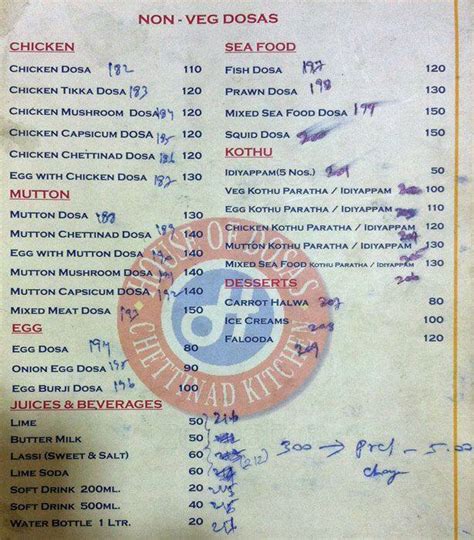 NON - VEG DOSAS
CHICKEN
CHICKEN DOSA 182 110
CHICKEN TIKKA DOSA 183 120
CHICKEN MUSHROOM DOSA 184 120
CHICKEN CAPSICUM DOSA 185 120
CHICKEN CHETTINAD DOSA 186 120
EGG WITH CHICKEN DOSA 187 130
MUTTON
MUTTON DOSA 188 130
MUTTON CHETTINAD DOSA 189 130
EGG WITH MUTTON DOSA 140
MUTTON MUSHROOM DOSA 140
MUTTON CAPSICUM DOSA 192 140
MIXED MEAT DOSA 193 150
EGG
EGG DOSA 194 80
ONION EGG DOSA 195 90
EGG BURJI DOSA 196 100
JUICES & BEVERAGES
LIME 50
BUTTER MILK 50
LASSI (SWEET & SALT) 60 (212)
LIME SODA 50
SOFT DRINK 200ML. 20
SOFT DRINK 500ML. 40
WATER BOTTLE 1 LTR. 20
SEA FOOD
FISH DOSA 197 120
PRAWN DOSA 198 130
MIXED SEA FOOD DOSA 199 150
SQUID DOSA 150
KOTHU
IDIYAPPAM(5 NOS.) 50
VEG KOTHU PARATHA / IDIYAPPAM 100
EGG KOTHU PARATHA / IDIYAPPAM 110
CHICKEN KOTHU PARATHA / IDIYAPPAM 120
MUTTON KOTHU PARATHA / IDIYAPPAM 130
MIXED SEA FOOD KOTHU PARATHA / IDIYAPPAM 130
DESSERTS
CARROT HALWA 207 80
ICE CREAMS 60
FALOODA 209 120
300 → - 5.00
HOUSE OF DOSA'S
CHETTINAD KITCHEN